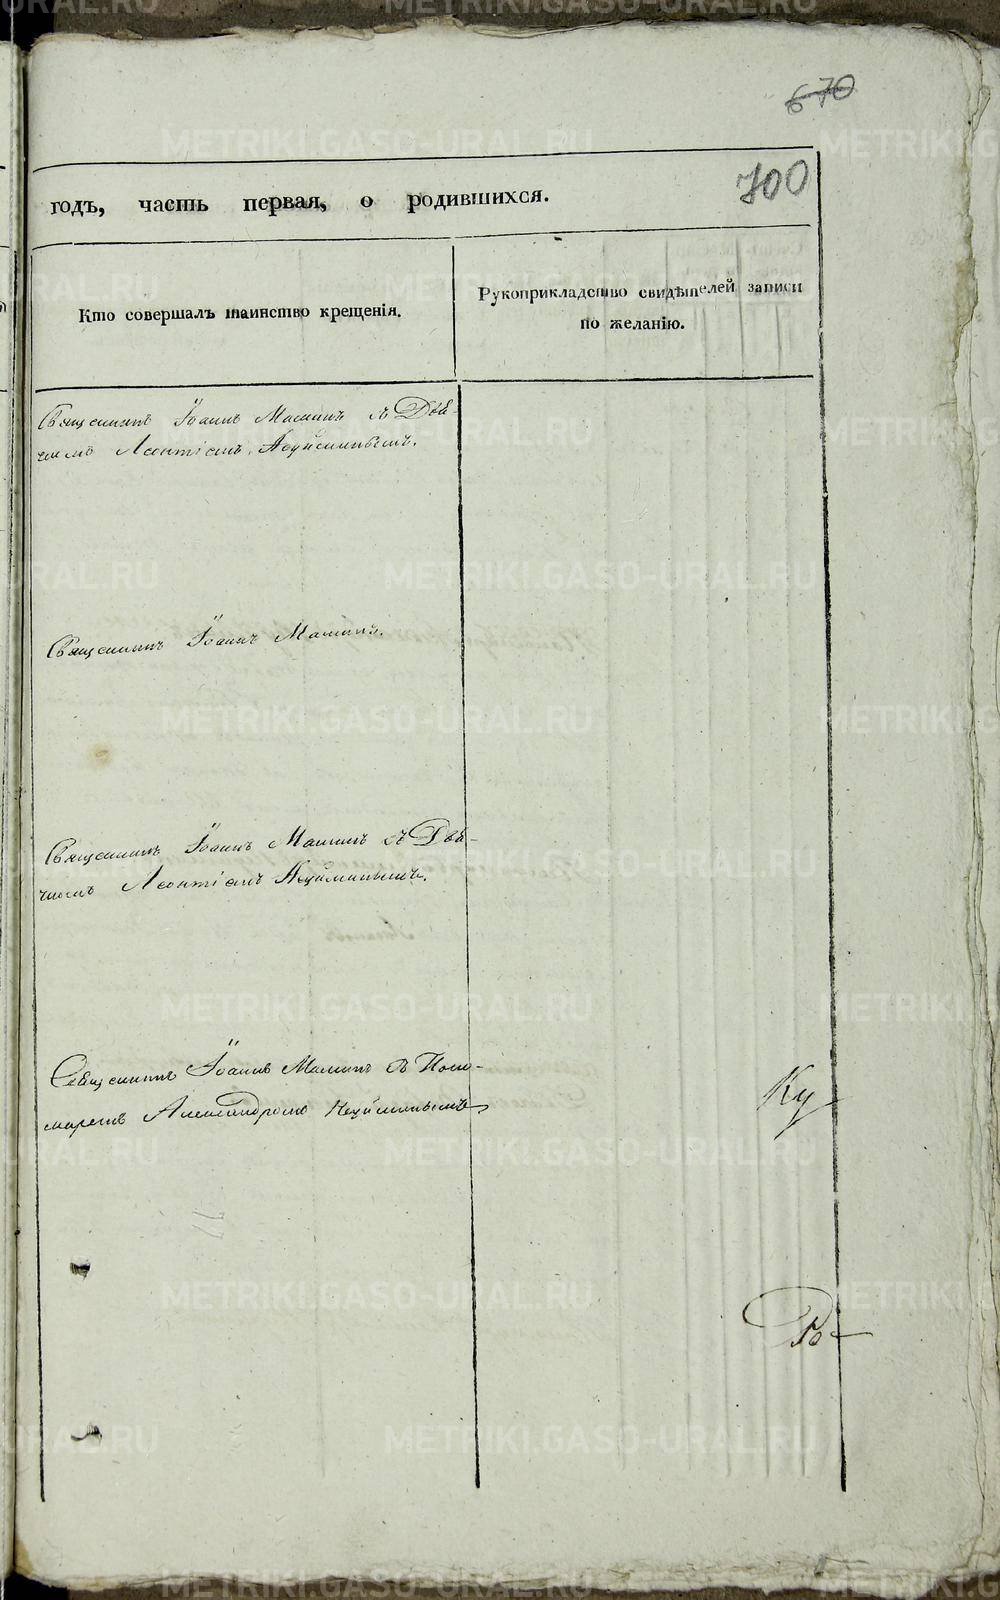 670
700
годъ, часть первая, о родившихся.
Кто совершалъ таинство крещенія.
Рукоприкладство свидѣтелей записи
по желанію.
Священникъ Іоаннъ Мамин съ Дья
чкомъ Леонтіемъ
Священникъ Іоаннъ Маминъ.
Священникъ Іоаннъ Маминъ съ Дья-
чкомъ Леонтіемъ
Священникъ Іоаннъ Маминъ съ Поно-
маремъ Александромъ
Ку
METRIKI.GASO-URAL.RU